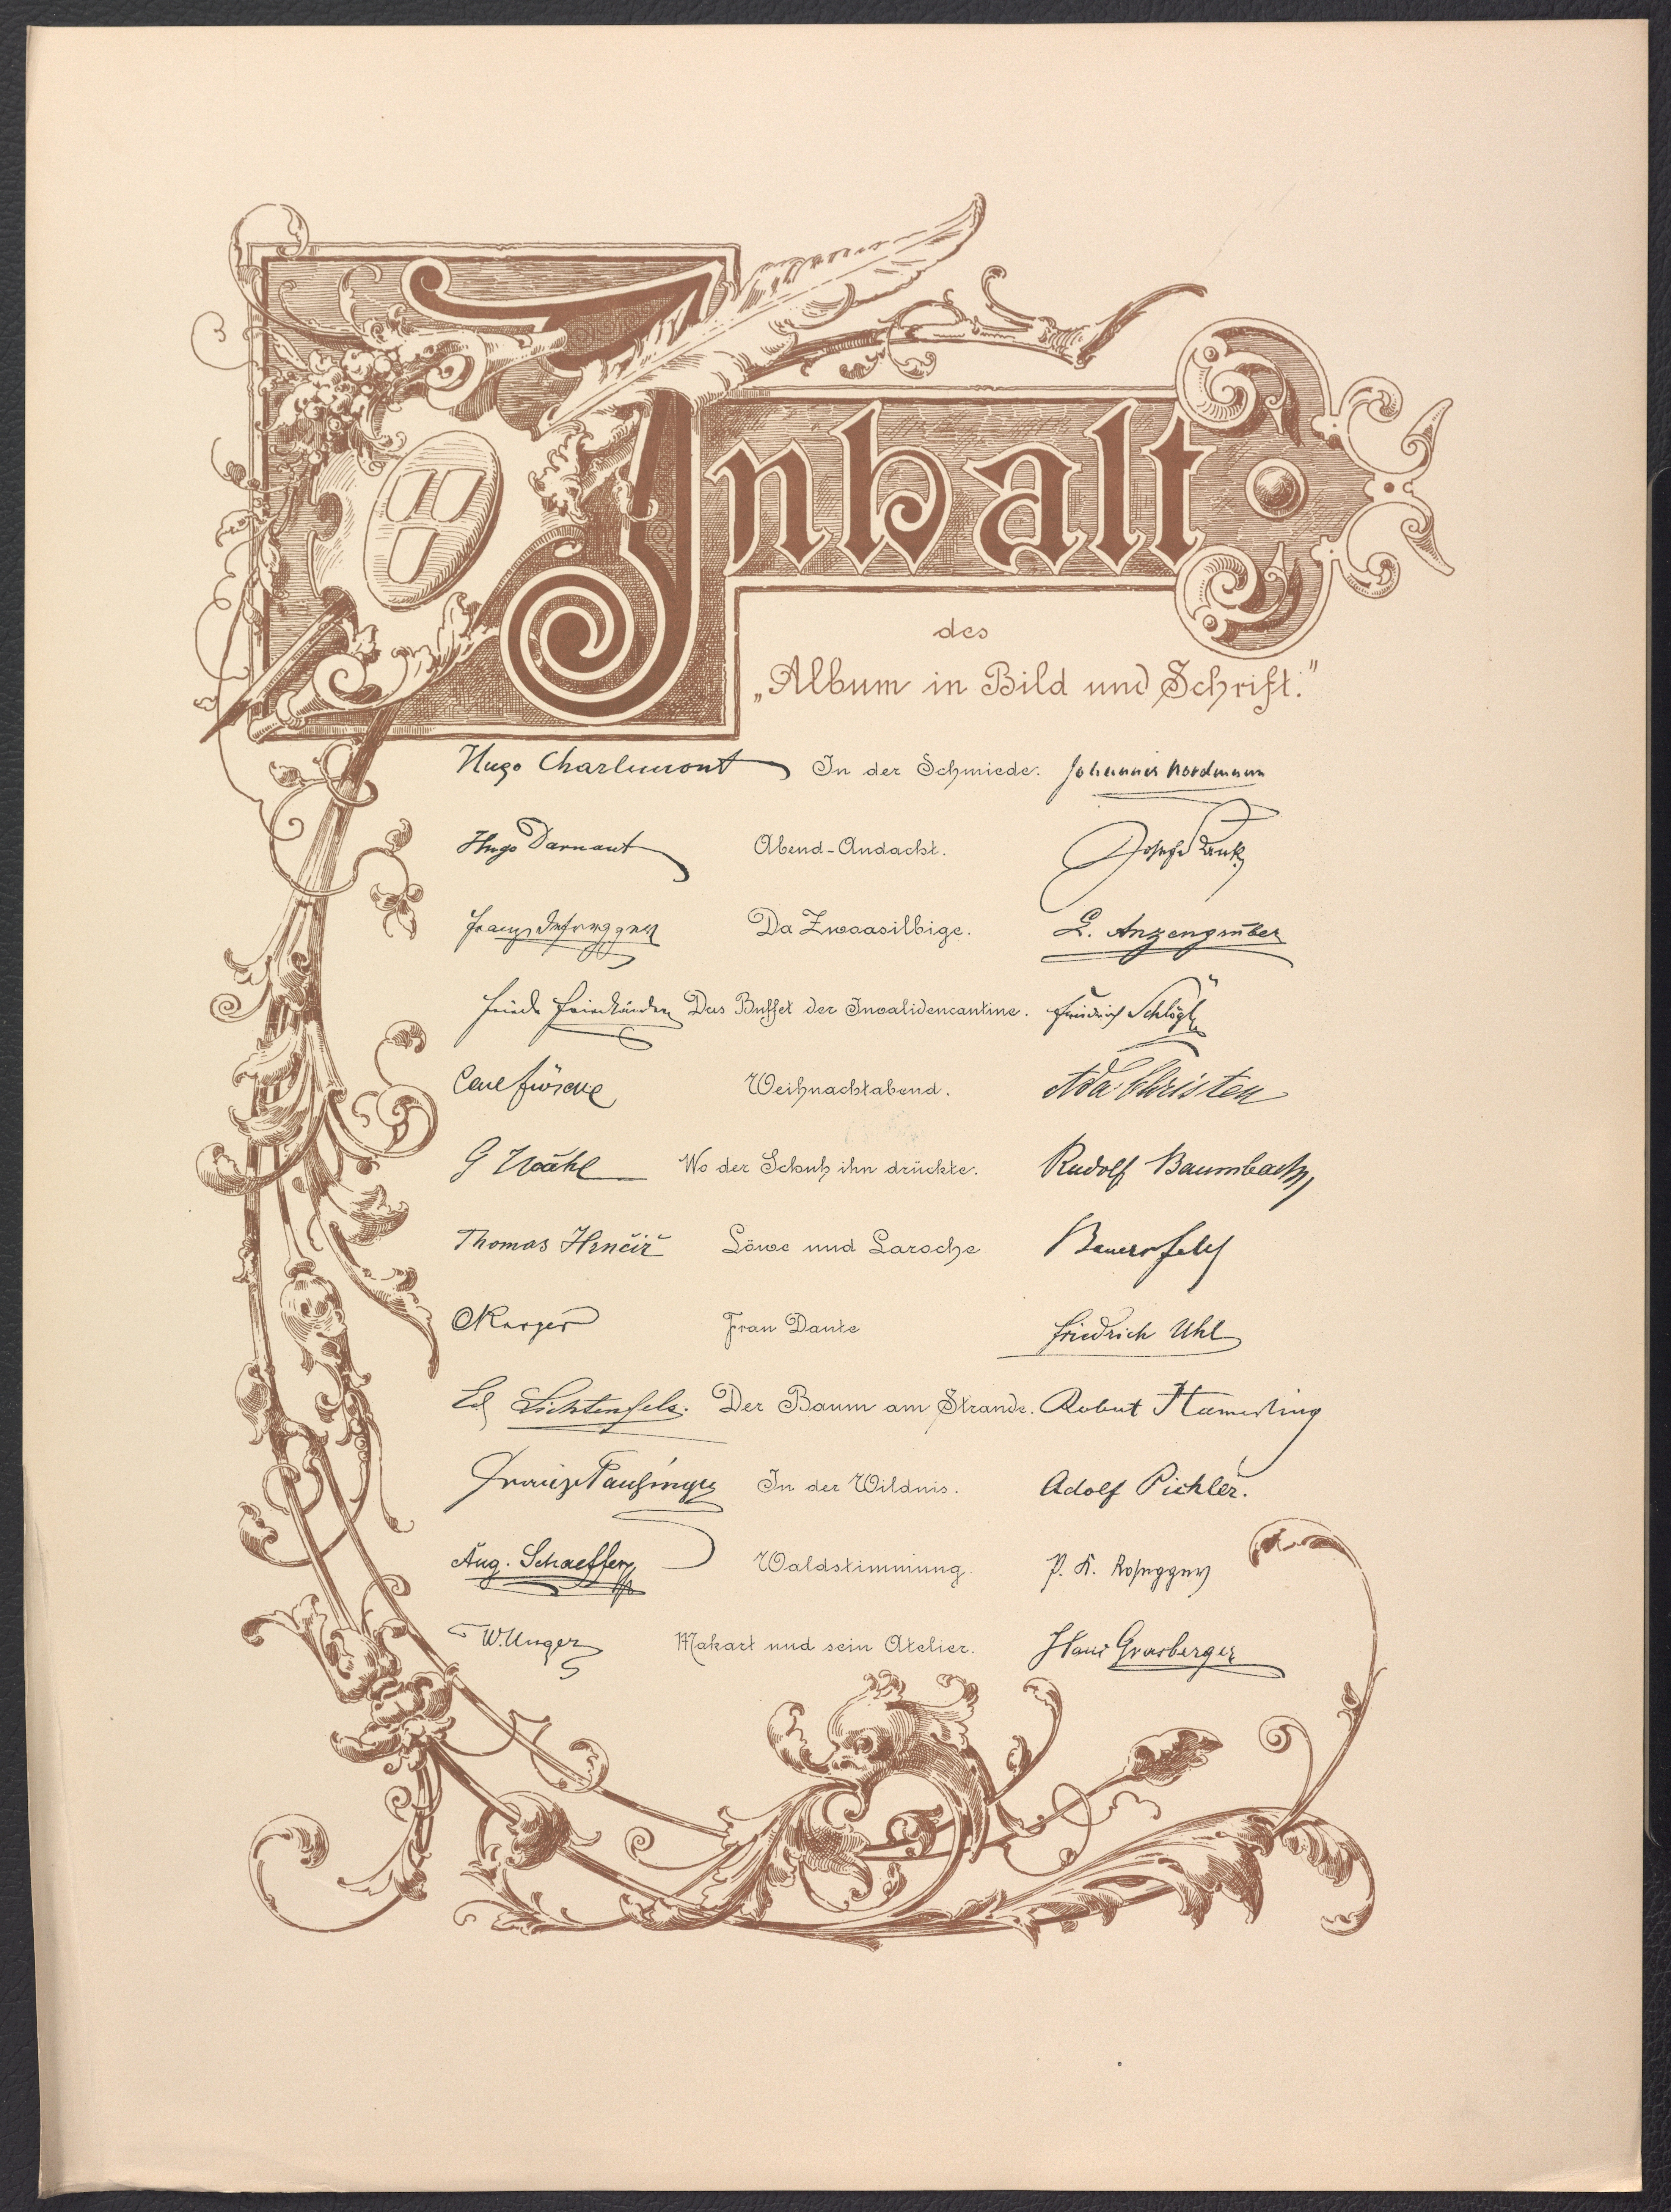 Inhalt
des
„Album in Bild und Schrift."
Hugo Charlemont In der Schmiede. Johannes Nordmann
Hugo Darnaut Abend-Andacht. Josef Rank
Franz Defregger Da Zwoasilbige. L. Anzengruber
Friedr Friedländer Das Buffet der Invalidencantine. Friedrich Schlögl
Carl Fröschl Weihnachtabend. Ada Christen
G Wähl Wo der Schuh ihn drückte. Rudolf Baumbach
Thomas Hrnčiř Löwe und Laroche Bauernfeld
CKarger Frau Dante Friedrich Uhl
Ed Lichtenfels. Der Baum am Strande. Robert Hamerling
Franz Pausinger In der Wildnis. Adolf Pichler.
Aug. Schaeffer Waldstimmung P. K. Rosegger
W. Unger Makart und sein Atelier. Hans Grasberger